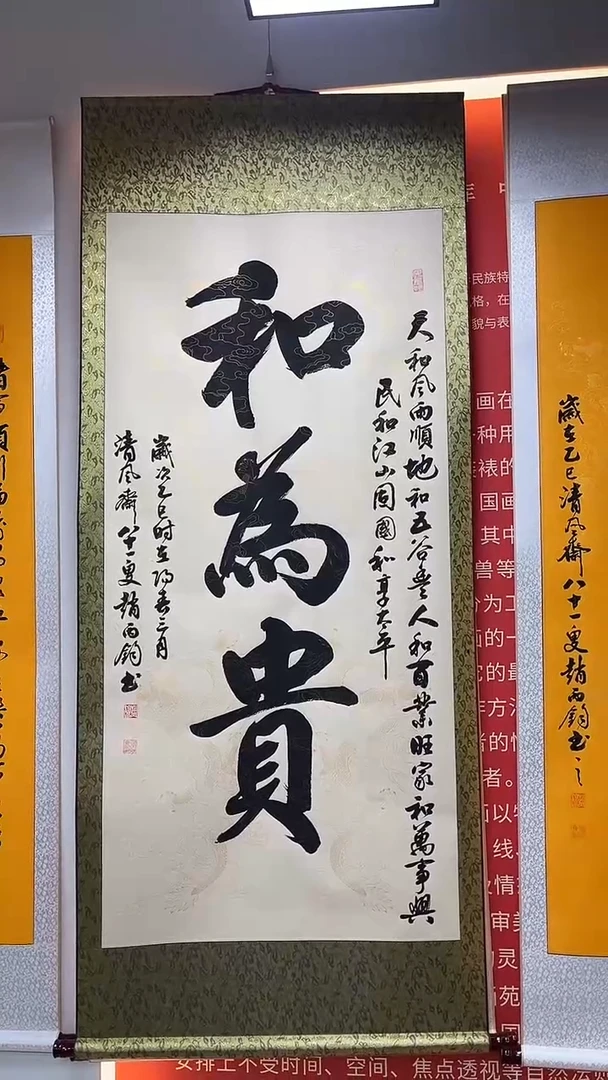 和為貴
天和風雨順地和五谷豐人和百業旺家和萬事興
民和江山固國和享太平
歲次乙巳时在阳春三月
清风齋八十一叟趙丙鈞书
歲在乙巳清风齋八十一叟趙丙鈞书之
民族特
格，在
貌与表
画在
种用
裱的
国画
其中
兽等
分为工
画的一
的最
作方
者的
者。
以
线、
情
审美
灵
苑
安排上不受时间、空间、焦点透视等自然法